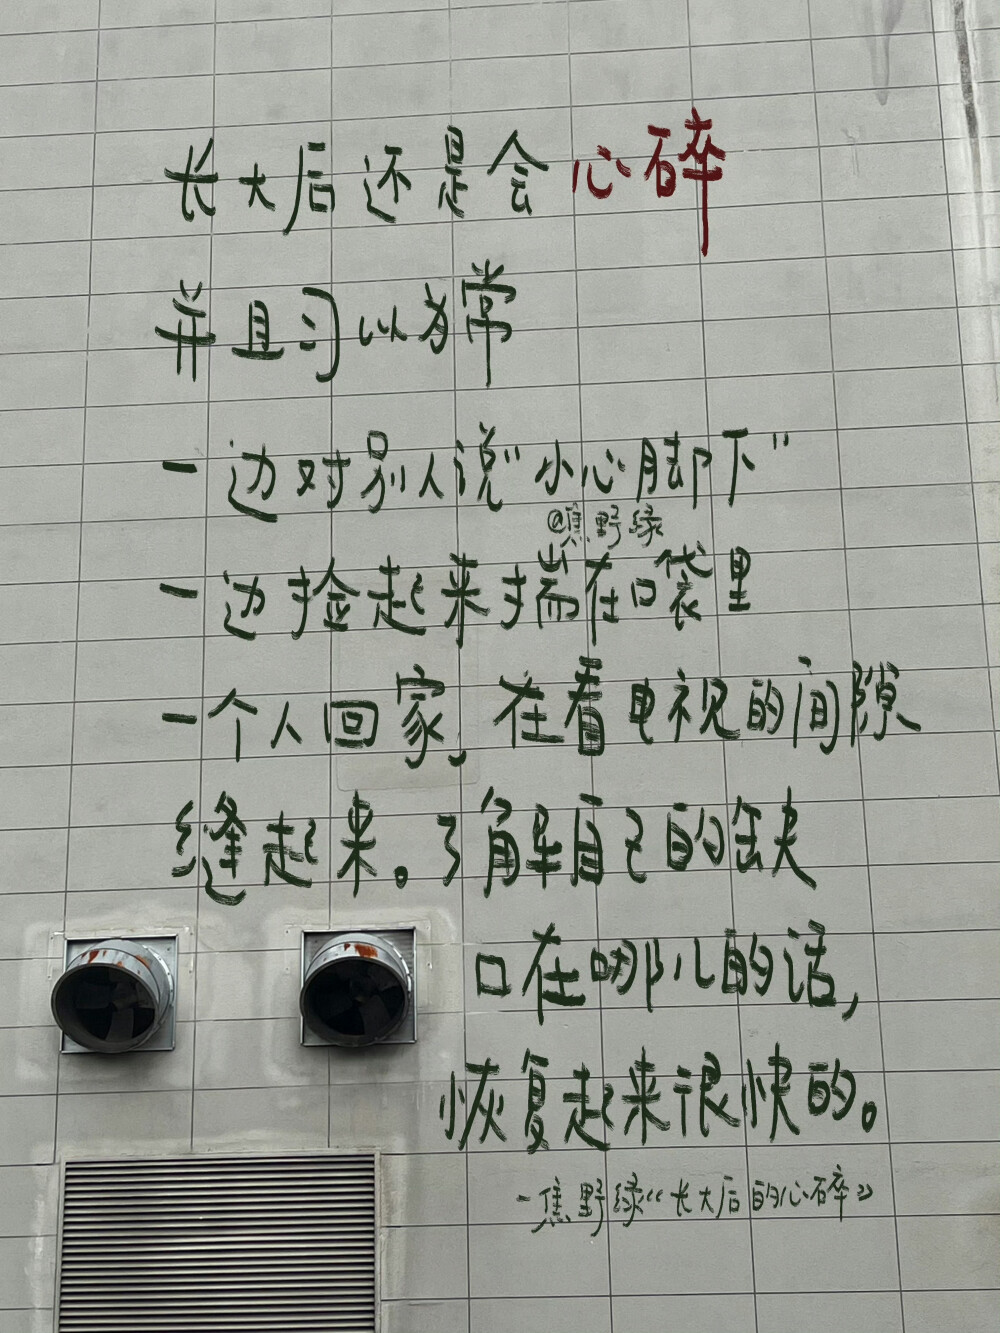 长大后还是会心碎
并且习以为常
一边对别人说“小心脚下”
@焦野绿
一边捡起来揣在口袋里
一个人回家，在看电视的间隙
缝起来。了解自己的缺
口在哪儿的话，
恢复起来很快的。
-焦野绿《长大后的心碎》